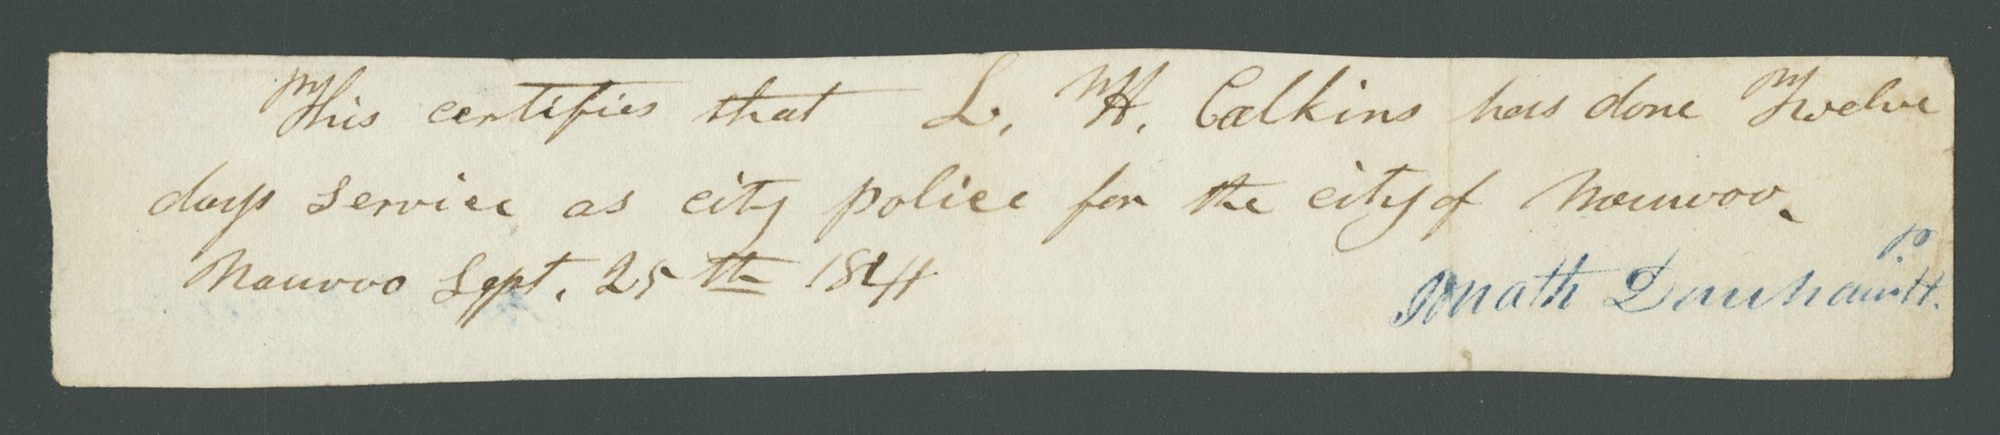 This certifies that L. H. Calkins has done Twelve
days service as city police for the city of Nauvoo.
Nauvoo Sept. 25th 1844
Jonath Dunham